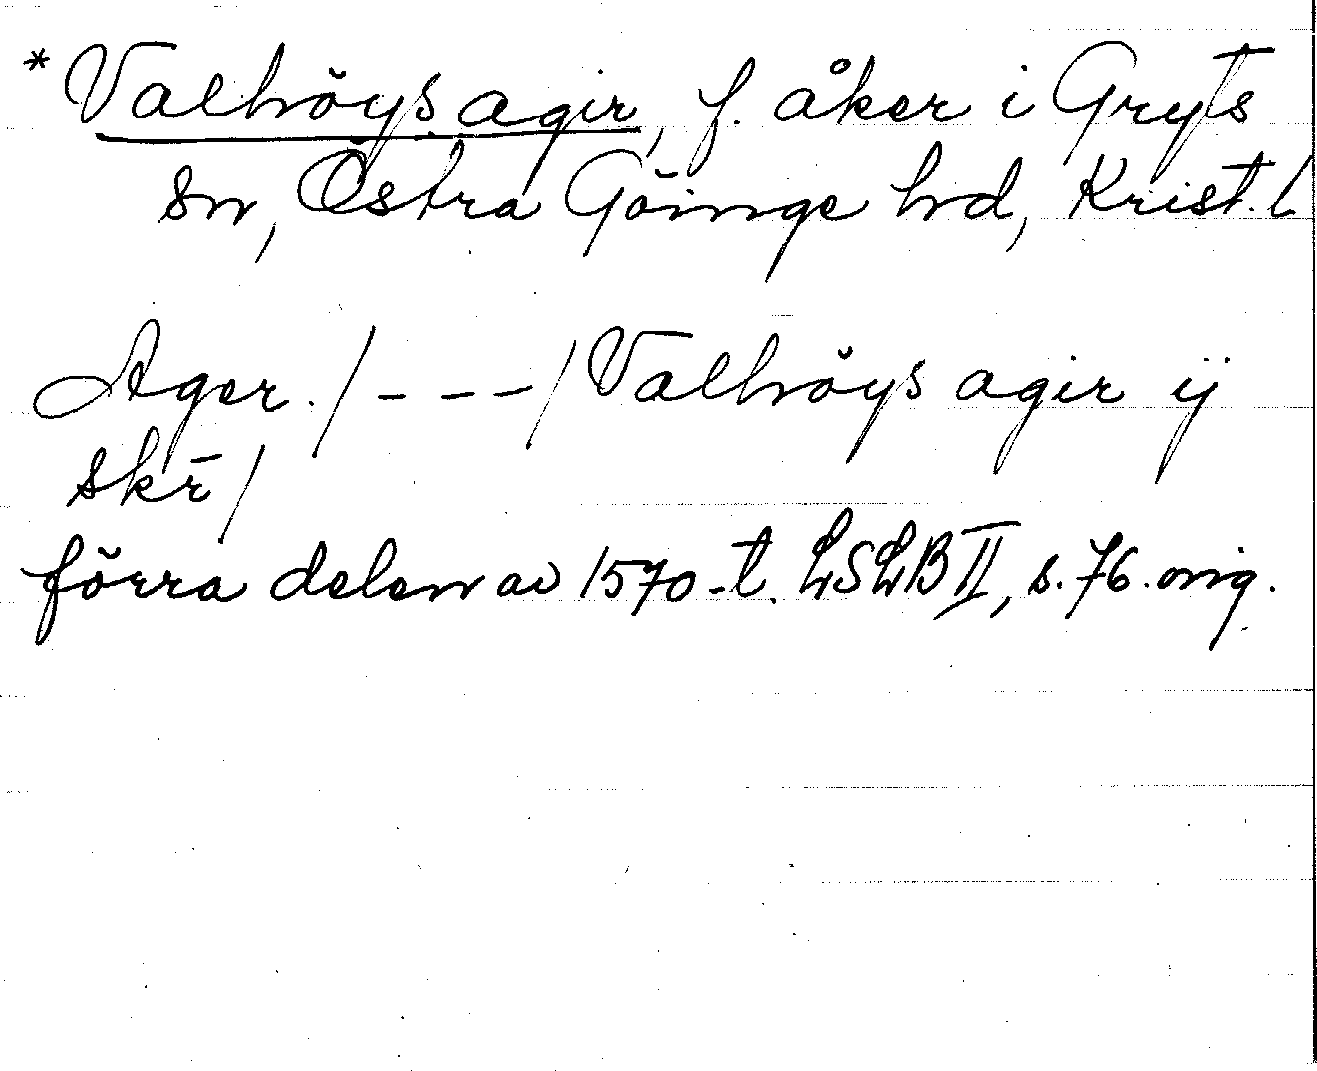 *Valhöys agir, f. åker i Gryts
sn, Östra Göinge hd, Krist. l
Ager. /---/ Valhöys agir ij
skr̄ /
förra delen av 1570-t. LSLB II, s. 76. orig.